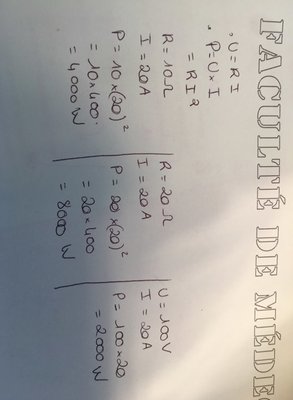 FACULTÉ DE MÉDE
. U = R I
. P = U x I
= R I²
R = 10 Ω
I = 20 A
P = 10 x (20)²
= 10 x 400.
= 4000 W
R = 20 Ω
I = 20 A
P = 20 x (20)²
= 20 x 400
= 8000 W
U = 100 V
I = 20 A
P = 100 x 20
= 2000 W